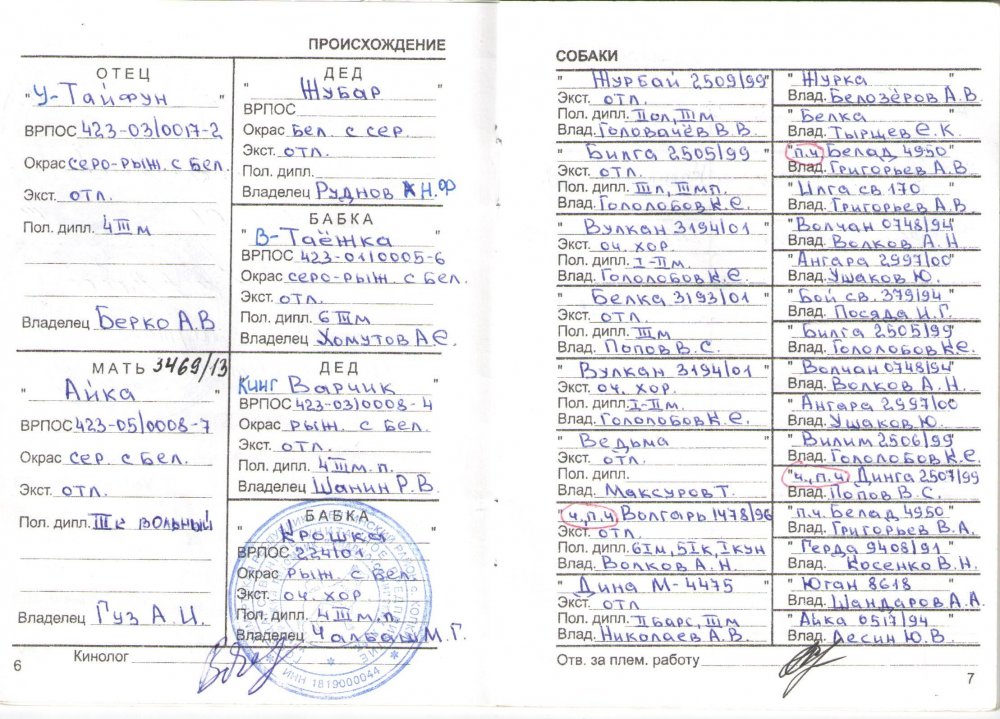 ПРОИСХОЖДЕНИЕ
ОТЕЦ
"У-Тайфун"
ВРПОС 423-03/0017-2
Окрас серо-рыж. с бел.
Экст. отл.
Пол. дипл. 4 III м
Владелец Берко А.В
МАТЬ 3469/13
"Айка"
ВРПОС 423-05/0008-7
Окрас сер. с бел.
Экст. отл.
Пол. дипл. III к вольный
Владелец Гуз А.И.
ДЕД
"Жубар"
ВРПОС
Окрас бел. с сер.
Экст. отл.
Пол. дипл.
Владелец Руднов Н.Ф
БАБКА
"В-Таёжка"
ВРПОС 423-01/0005-6
Окрас серо-рыж. с бел.
Экст. отл.
Пол. дипл. 6 III м
Владелец Хомутов А.Є.
ДЕД
Кинг Варчик
ВРПОС 423-03/0008-4
Окрас рыж. с бел.
Экст. отл.
Пол. дипл. 4 III м.п.
Владелец Шанин Р.В.
БАБКА
"Крошка"
ВРПОС 224/01
Окрас рыж. с бел.
Экст. оч. хор
Пол. дипл. 4 III м.п.
Владелец Чалбаш М.Г.
ИНН 1819000044
Кинолог
6
СОБАКИ
"Журбай 2509/99"
Экст. отл.
Пол. дипл. II ол, III м
Влад. Головачёв В.В.
"Билга 2505/99"
Экст. отл.
Пол. дипл. III л, III м п.
Влад. Гололобов К.Є.
"Вулкан 3194/01"
Экст. оч. хор.
Пол. дипл. I-II м.
Влад. Гололобов К.Є.
"Белка 3193/01"
Экст. отл.
Пол. дипл. III м
Влад. Попов В.С.
"Вулкан 3194/01"
Экст. оч. хор.
Пол. дипл. I-II м.
Влад. Гололобов К.Є.
"Ведьма"
Экст. отл.
Пол. дипл.
Влад. Максуров Т.
"ч., п.ч. Волгарь 1478/96"
Пол. дипл. 6 I м, 5 I к, I кун
Влад. Волков А.Н
"Дина М-4475"
Экст. отл
Пол. дипл. II барс, III м
Влад. Николаев А.В.
"Журка"
Влад. Белозёров А.В.
"Белка"
Влад. Тырщев Є.К.
"п.ч Белад 4950"
Влад. Григорьев А.В
"Илга св 170"
Влад. Григорьев А.В
"Волчан 0748/94"
Влад. Волков А.Н
"Ангара 2997/00"
Влад. Ушаков Ю.
"Бой св. 379/94"
Влад. Посяда И.Г.
"Билга 2505/99"
Влад. Гололобов К.Є.
"Волчан 0748/94"
Влад. Волков А.Н.
"Ангара 2997/00
Влад. Ушаков Ю.
"Вилим 2506/99"
Влад. Гололобов К.Є.
"ч., п.ч. Динга 2507/99
Влад. Попов В.С.
"п.ч. Белад 4950"
Влад. Григорьев В.А.
"Герда 9408/91"
Влад. Косенко В.Н.
"Юган 8618"
Влад. Шандаров А.А.
"Айка 0517/94"
Влад. Лесин Ю.В
Отв. за плем. работу
7